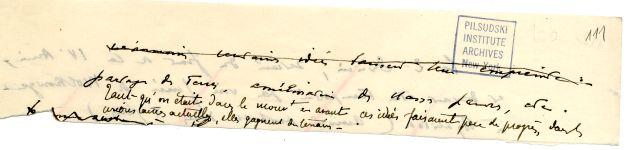 PILSUDSKI
INSTITUTE
ARCHIVES
New York
111
Néanmoins certaines idées laissent leur empreinte:
partage des terres, amélioration des classes pauvres, etc.
Tant qu'on était dans le mouvt avant ces idées faisaient peu de progrès, dans les
luttes actuelles, elles gagnent du terrain —